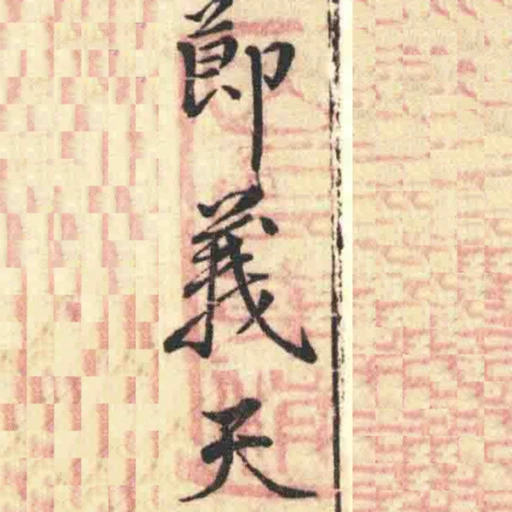 節義天